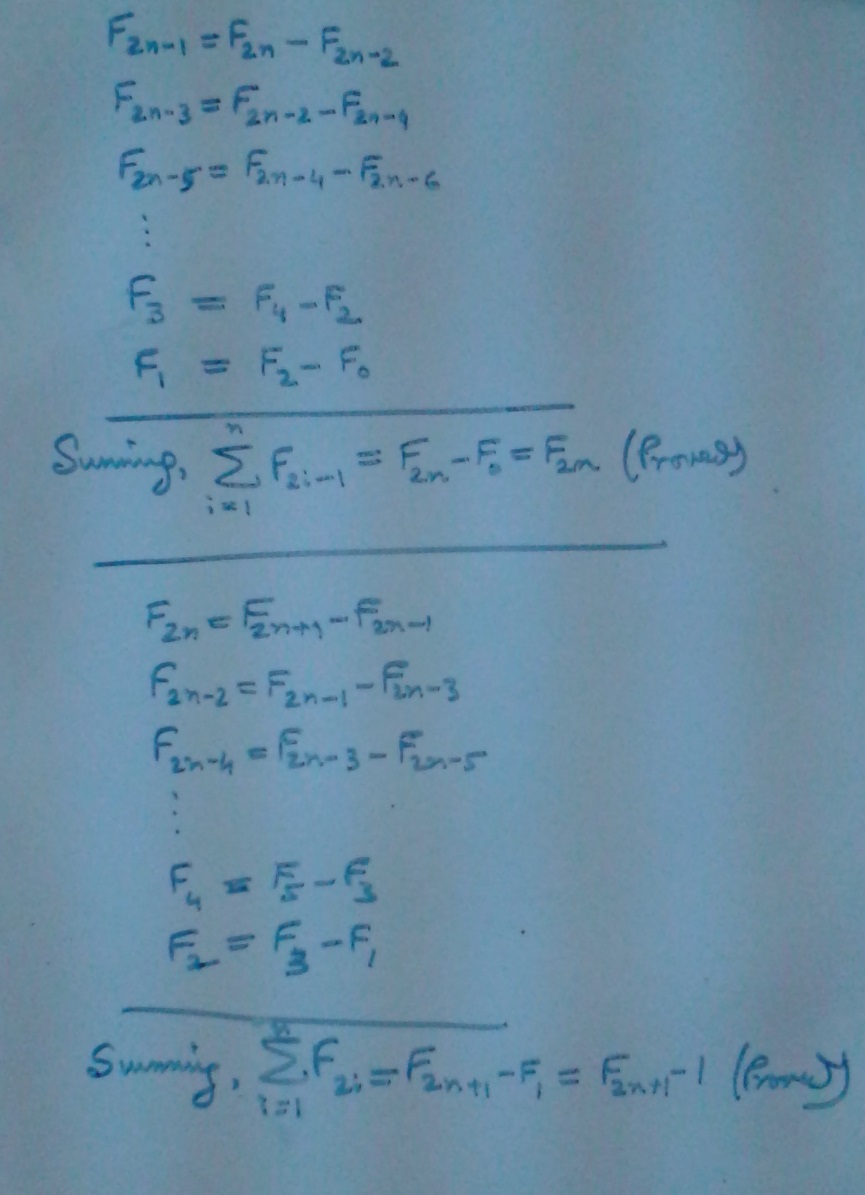 F₂ₙ₋₁ = F₂ₙ − F₂ₙ₋₂
F₂ₙ₋₃ = F₂ₙ₋₂ − F₂ₙ₋₄
F₂ₙ₋₅ = F₂ₙ₋₄ − F₂ₙ₋₆
⋮
F₃ = F₄ − F₂
F₁ = F₂ − F₀
Summing, ∑ⁿᵢ₌₁ F₂ᵢ₋₁ = F₂ₙ − F₀ = F₂ₙ (Proved)
F₂ₙ = F₂ₙ₊₁ − F₂ₙ₋₁
F₂ₙ₋₂ = F₂ₙ₋₁ − F₂ₙ₋₃
F₂ₙ₋₄ = F₂ₙ₋₃ − F₂ₙ₋₅
⋮
F₄ = F₅ − F₃
F₂ = F₃ − F₁
Summing, ∑ⁿᵢ₌₁ F₂ᵢ = F₂ₙ₊₁ − F₁ = F₂ₙ₊₁ − 1 (Proved)